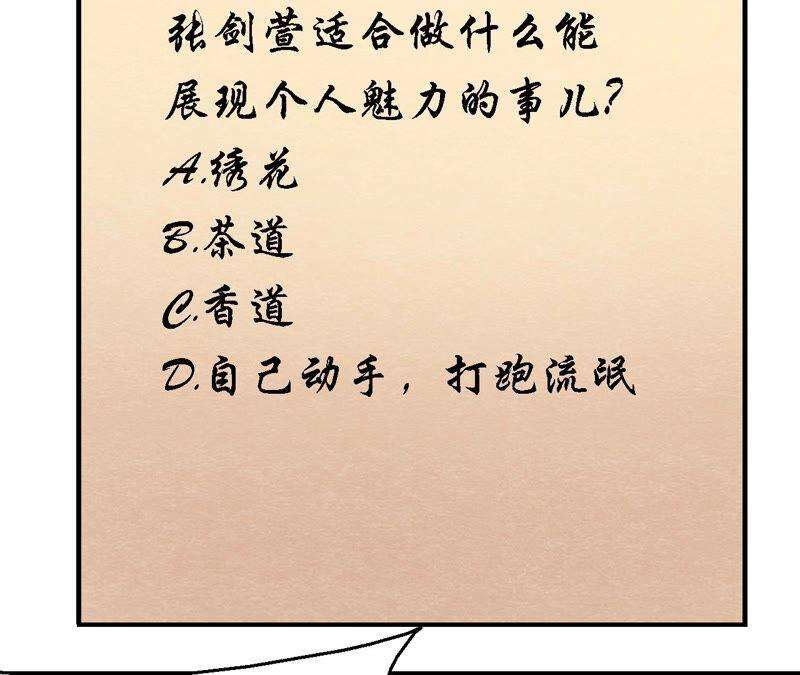 张剑萱适合做什么能
展现个人魅力的事儿?
A.绣花
B.茶道
C.香道
D.自己动手，打跑流氓